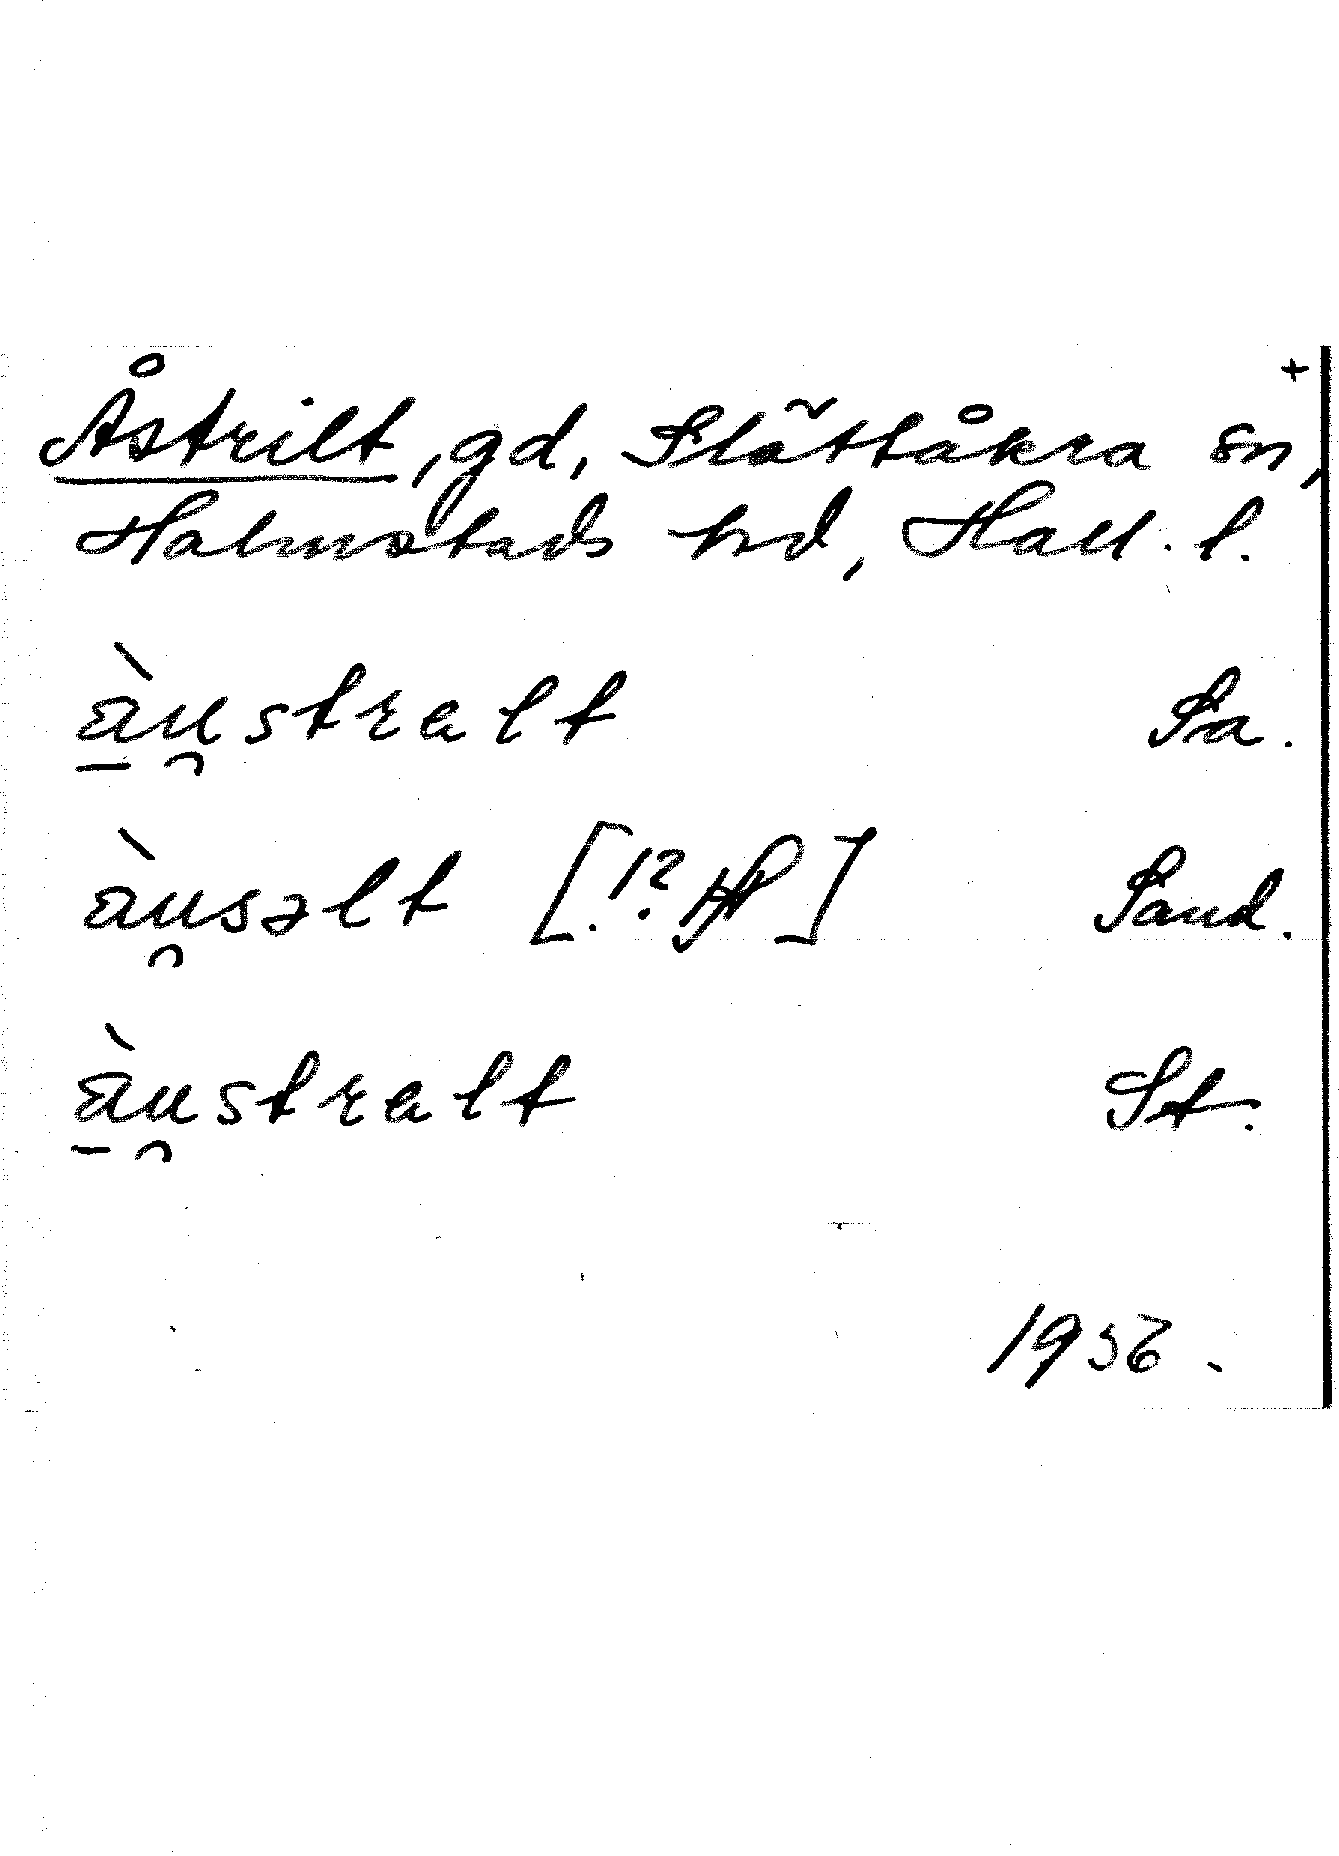 +
Åstrilt, gd, Slättåkra sn,
Halmstads hd, Hall. l.
àu̯stralt Sa.
àu̯səlt [.!? Hf] Sand.
àu̯stralt St.
1936.